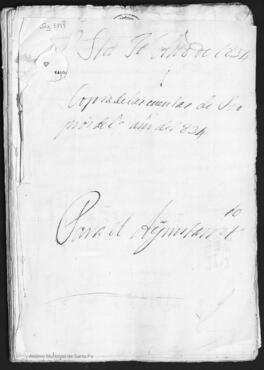 Leg. 3918
Sta Fe Año de 1834
Copia de las cuentas de Pro
pios del año del 834
Para el Ayuntamto
Archivo Municipal de Santa Fe